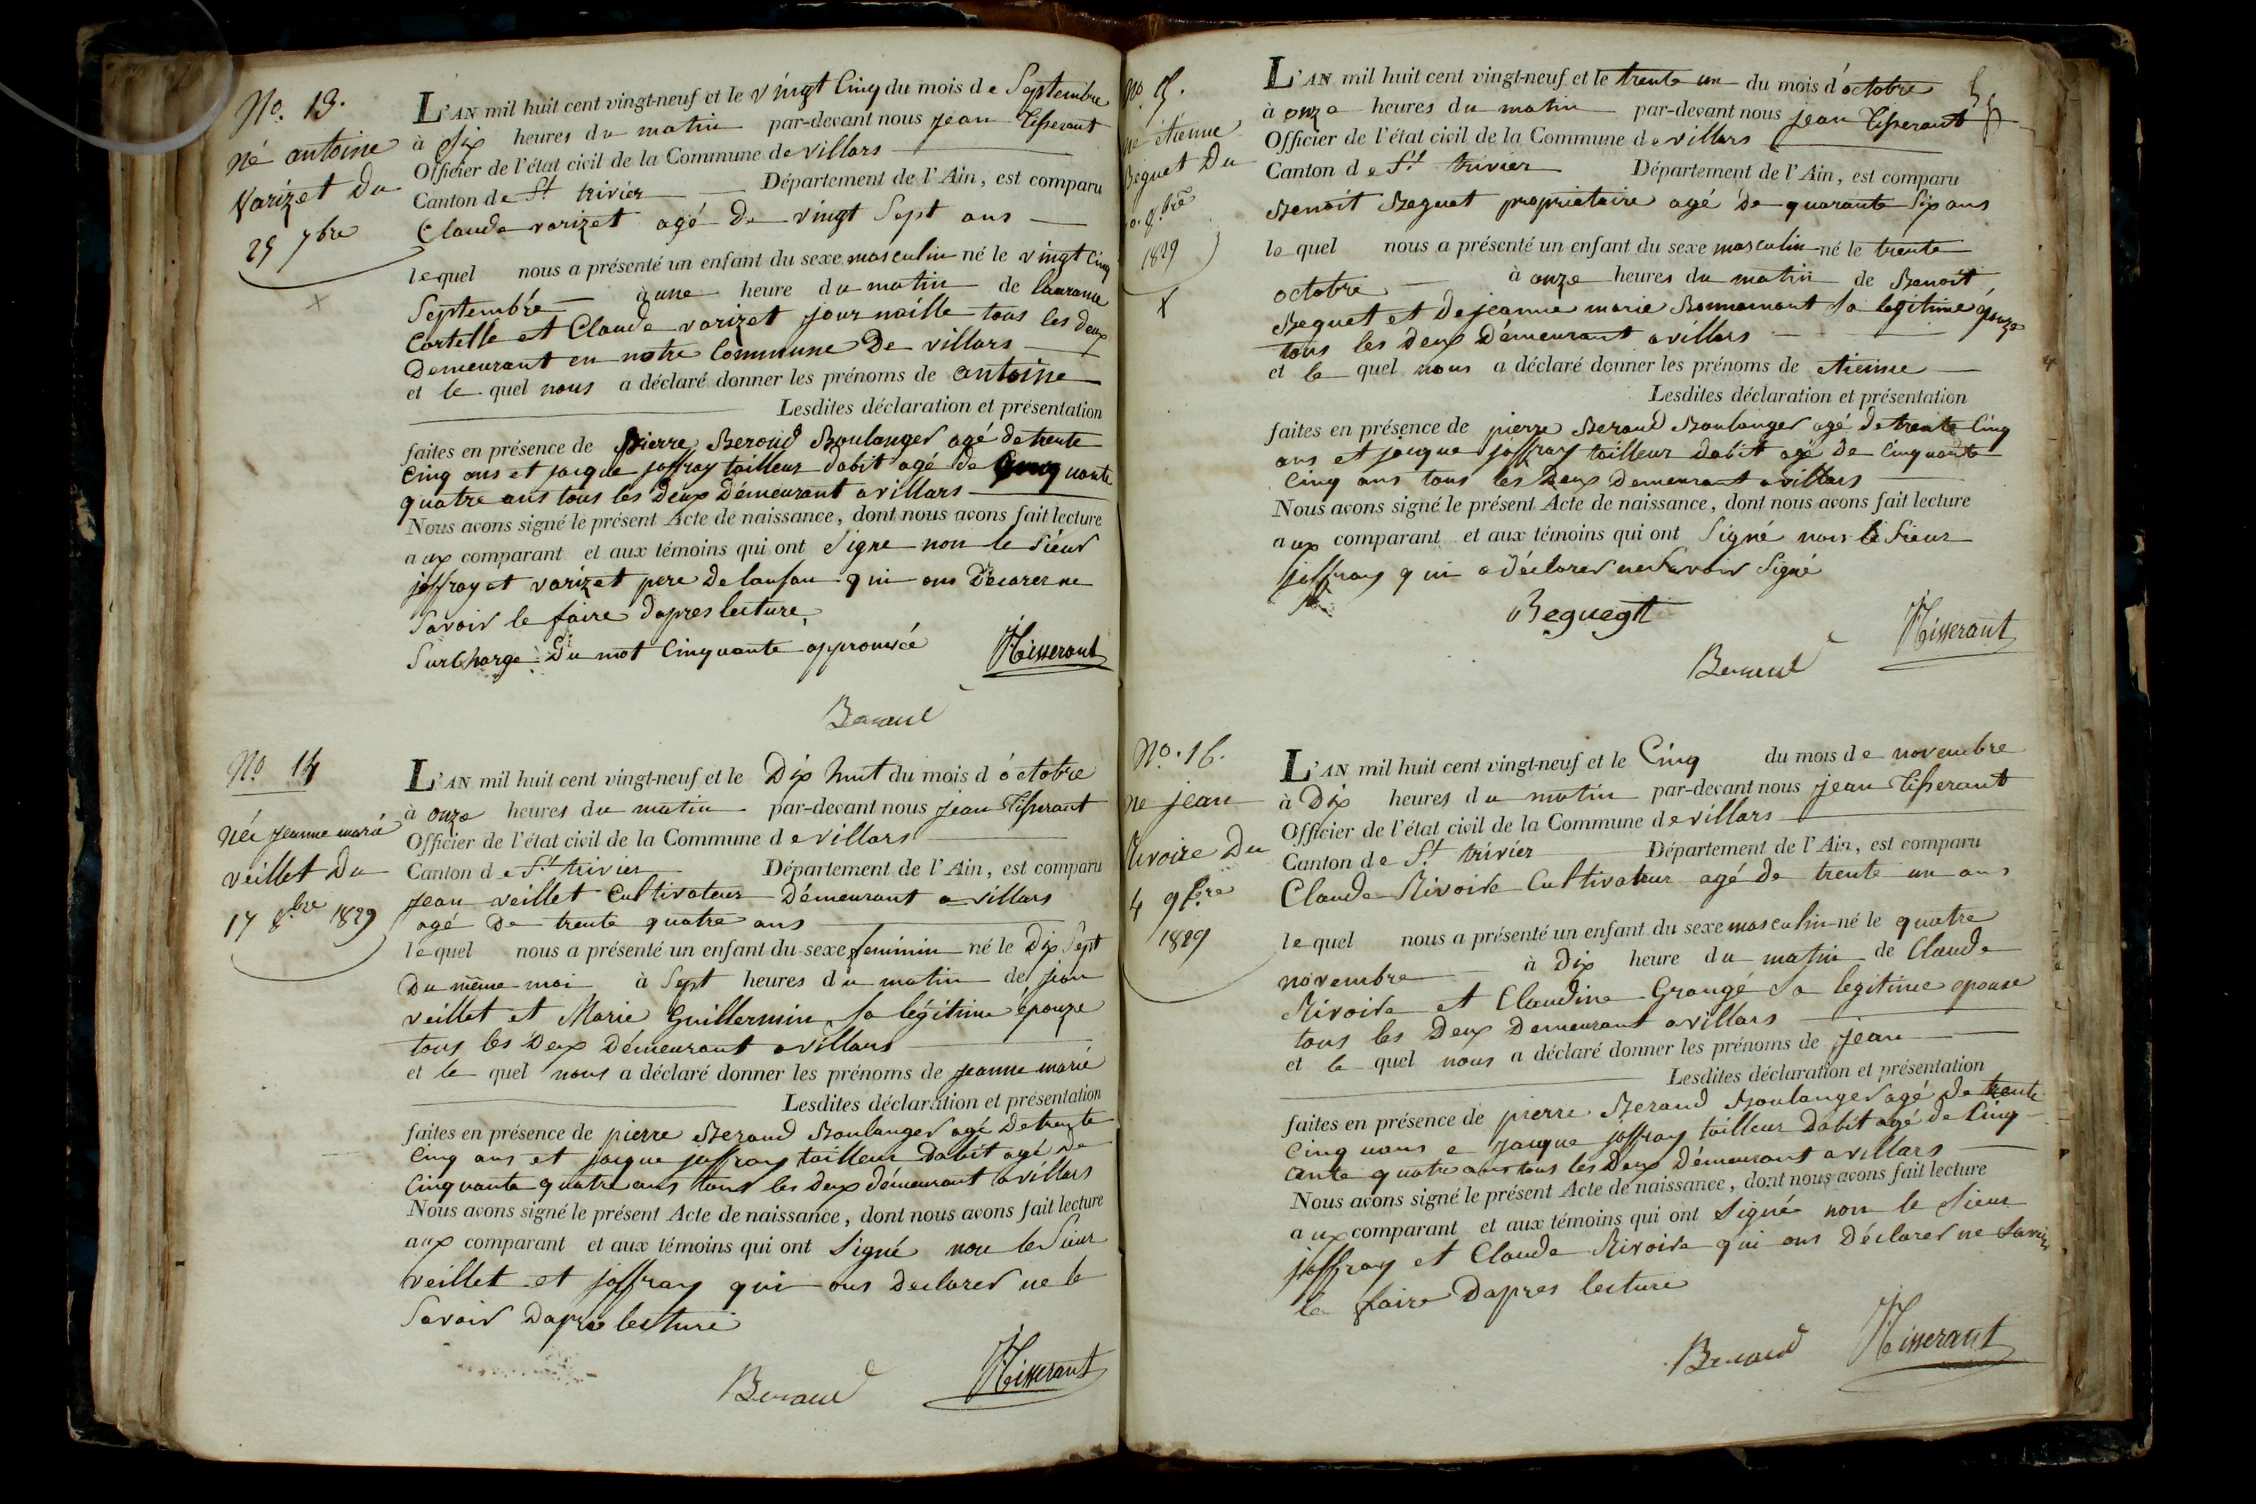 No. 13.
né antoine
Varizet Du
25 7bre
L'AN mil huit cent vingt-neuf et le vingt Cinq du mois de Septembre
à Six heures du matin par-devant nous jean tisserant
Officier de l'état civil de la Commune de villars
Canton de St. trivier Département de l'Ain, est comparu
Claude varizet agé de vingt Sept ans
lequel nous a présenté un enfant du sexe masculin né le vingt Cinq
Septembre à une heure du matin de
Cortelle et Claude varizet journaille tous les deux
Demeurant en notre Commune De villars
et le quel nous a déclaré donner les prénoms de antoine
Lesdites déclaration et présentation
faites en présence de pierre Beraud Boulanger agé de trente
Cinq ans et jacque joffray tailleur dabit agé de Cinquante
quatre ans tous les Deux Démeurant a villars
Nous avons signé le présent Acte de naissance, dont nous avons fait lecture
aux comparant et aux témoins qui ont Signe non le Sieur
joffray et varizet pere de lanfan qui ons Décarer ne
Savoir le faire dapres lecture
Surcharge Du mot Cinquante approuvée JTisserant
Beraud
No 14
Née jeanne marie
veillet Du
17 8.bre 1829
L'AN mil huit cent vingt-neuf et le Dix huit du mois d'octobre
à onze heures du matin par-devant nous jean tisserant
Officier de l'état civil de la Commune de villars
Canton de St. trivier Département de l'Ain, est comparu
jean veillet Cultivateur Démeurant a villars
agé De trente quatre ans
lequel nous a présenté un enfant du sexe feminin né le Dix Sept
Du même moi à Sept heures du matin de jean
veillet et Marie Guillermin Sa légitime épouze
tous les Deux Démeurant a villars
et le quel nous a déclaré donner les prénoms de jeanne marié
Lesdites déclaration et présentation
faites en présence de pierre Beraud Boulanger agé De trente
Cinq ans et jacque joffray tailleur Dabit agé de
Cinquante quatre ans tous les Deux démeurant a villars
Nous avons signé le présent Acte de naissance, dont nous avons fait lecture
aux comparant et aux témoins qui ont Signé non le Sieur
veillet et joffray qui ons declarer ne le
Savoir Dapré lecture
Beraud JTisserant
né étienne
Beguet Du
8.bre
1829
L'AN mil huit cent vingt-neuf et le trente un du mois d'octobre
à onze heures du matin par-devant nous jean tisserant
Officier de l'état civil de la Commune de villars
Canton de St. trivier Département de l'Ain, est comparu
Benoit Beguet propriétaire agé de quarante Six ans
lequel nous a présenté un enfant du sexe masculin né le trente
octobre à onze heures du matin de Benoit
Beguet et De jeanne marie Sa legitime épouze
tous les deux Démeurant a villars
et le quel nous a déclaré donner les prénoms de etienne
Lesdites déclaration et présentation
faites en présence de pierre Beraud Boulanger agé De trente Cinq
ans et jacque joffray tailleur Dabit agé De Cinquante
Cinq ans tous les Deux Demeurant a villars
Nous avons signé le présent Acte de naissance, dont nous avons fait lecture
aux comparant et aux témoins qui ont Signé non le Sieur
joffray qui a déclarer ne Savoir Signé
Beguegt JTisserant
Beraud
No. 16.
né jean
Rivoire Du
4 9bre
1829
L'AN mil huit cent vingt-neuf et le Cinq du mois de novembre
à Dix heures du matin par-devant nous jean tisserant
Officier de l'état civil de la Commune de villars
Canton de St. trivier Département de l'Ain, est comparu
Claude Rivoire Cultivateur agé de trente un ans
lequel nous a présenté un enfant du sexe masculin né le quatre
novembre à Dix heure du matin de Claude
Rivoire et Claudine Grangé Sa legitime epouse
tous les Deux Demeurant a villars
et le quel nous a déclaré donner les prénoms de jean
Lesdites déclaration et présentation
faites en présence de pierre Beraud Boulanger agé De trente
Cinq e jacque joffray tailleur Dabit agé de Cinq
ante quatre ans tous les Deux Démeurant a villars
Nous avons signé le présent Acte de naissance, dont nous avons fait lecture
aux comparant et aux témoins qui ont Signé non le Sieur
joffray et Claude Rivoire qui ons Déclarer ne Savoir
le faire Dapres lecture
Beraud JTisserant